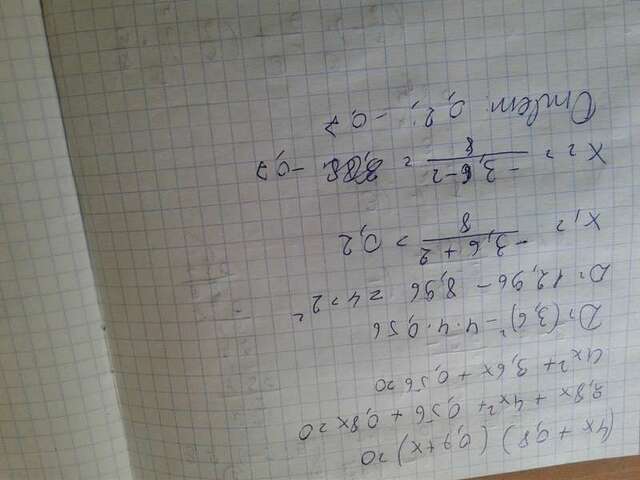 (4x + 0,8) (0,7+x) = 0
2,8x + 4x² + 0,56 + 0,8x = 0
4x² + 3,6x + 0,56 = 0
D = (3,6)² - 4·4·0,56
D = 12,96 - 8,96 = 4 = 2²
x₁ = (-3,6 + 2)/8 = 0,2
x₂ = (-3,6 - 2)/8 = -0,7
Ответ 0,2; -0,7